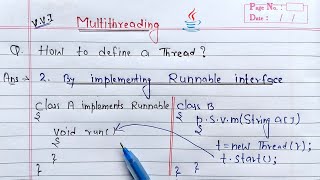 V.V.I
Multithreading
Java
Page No. :
Date : / /
Q. How to define a Thread?
Ans → 2. By implementing Runnable interface
Class A implements Runnable
{
void run()
{
}
}
Class B
{
p.s.v.m(String a[])
{
t=new Thread(r);
t.start();
}
}